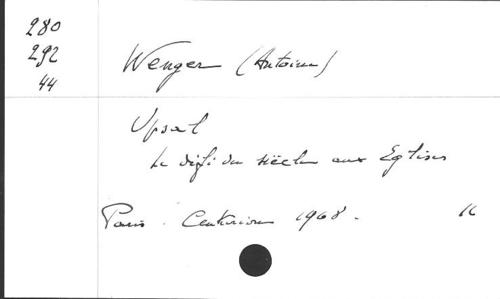 280
292
44
Wenger (Antoine)
Upsal
Le défi du siècle aux Eglises
Paris. Centurion 1968. 16